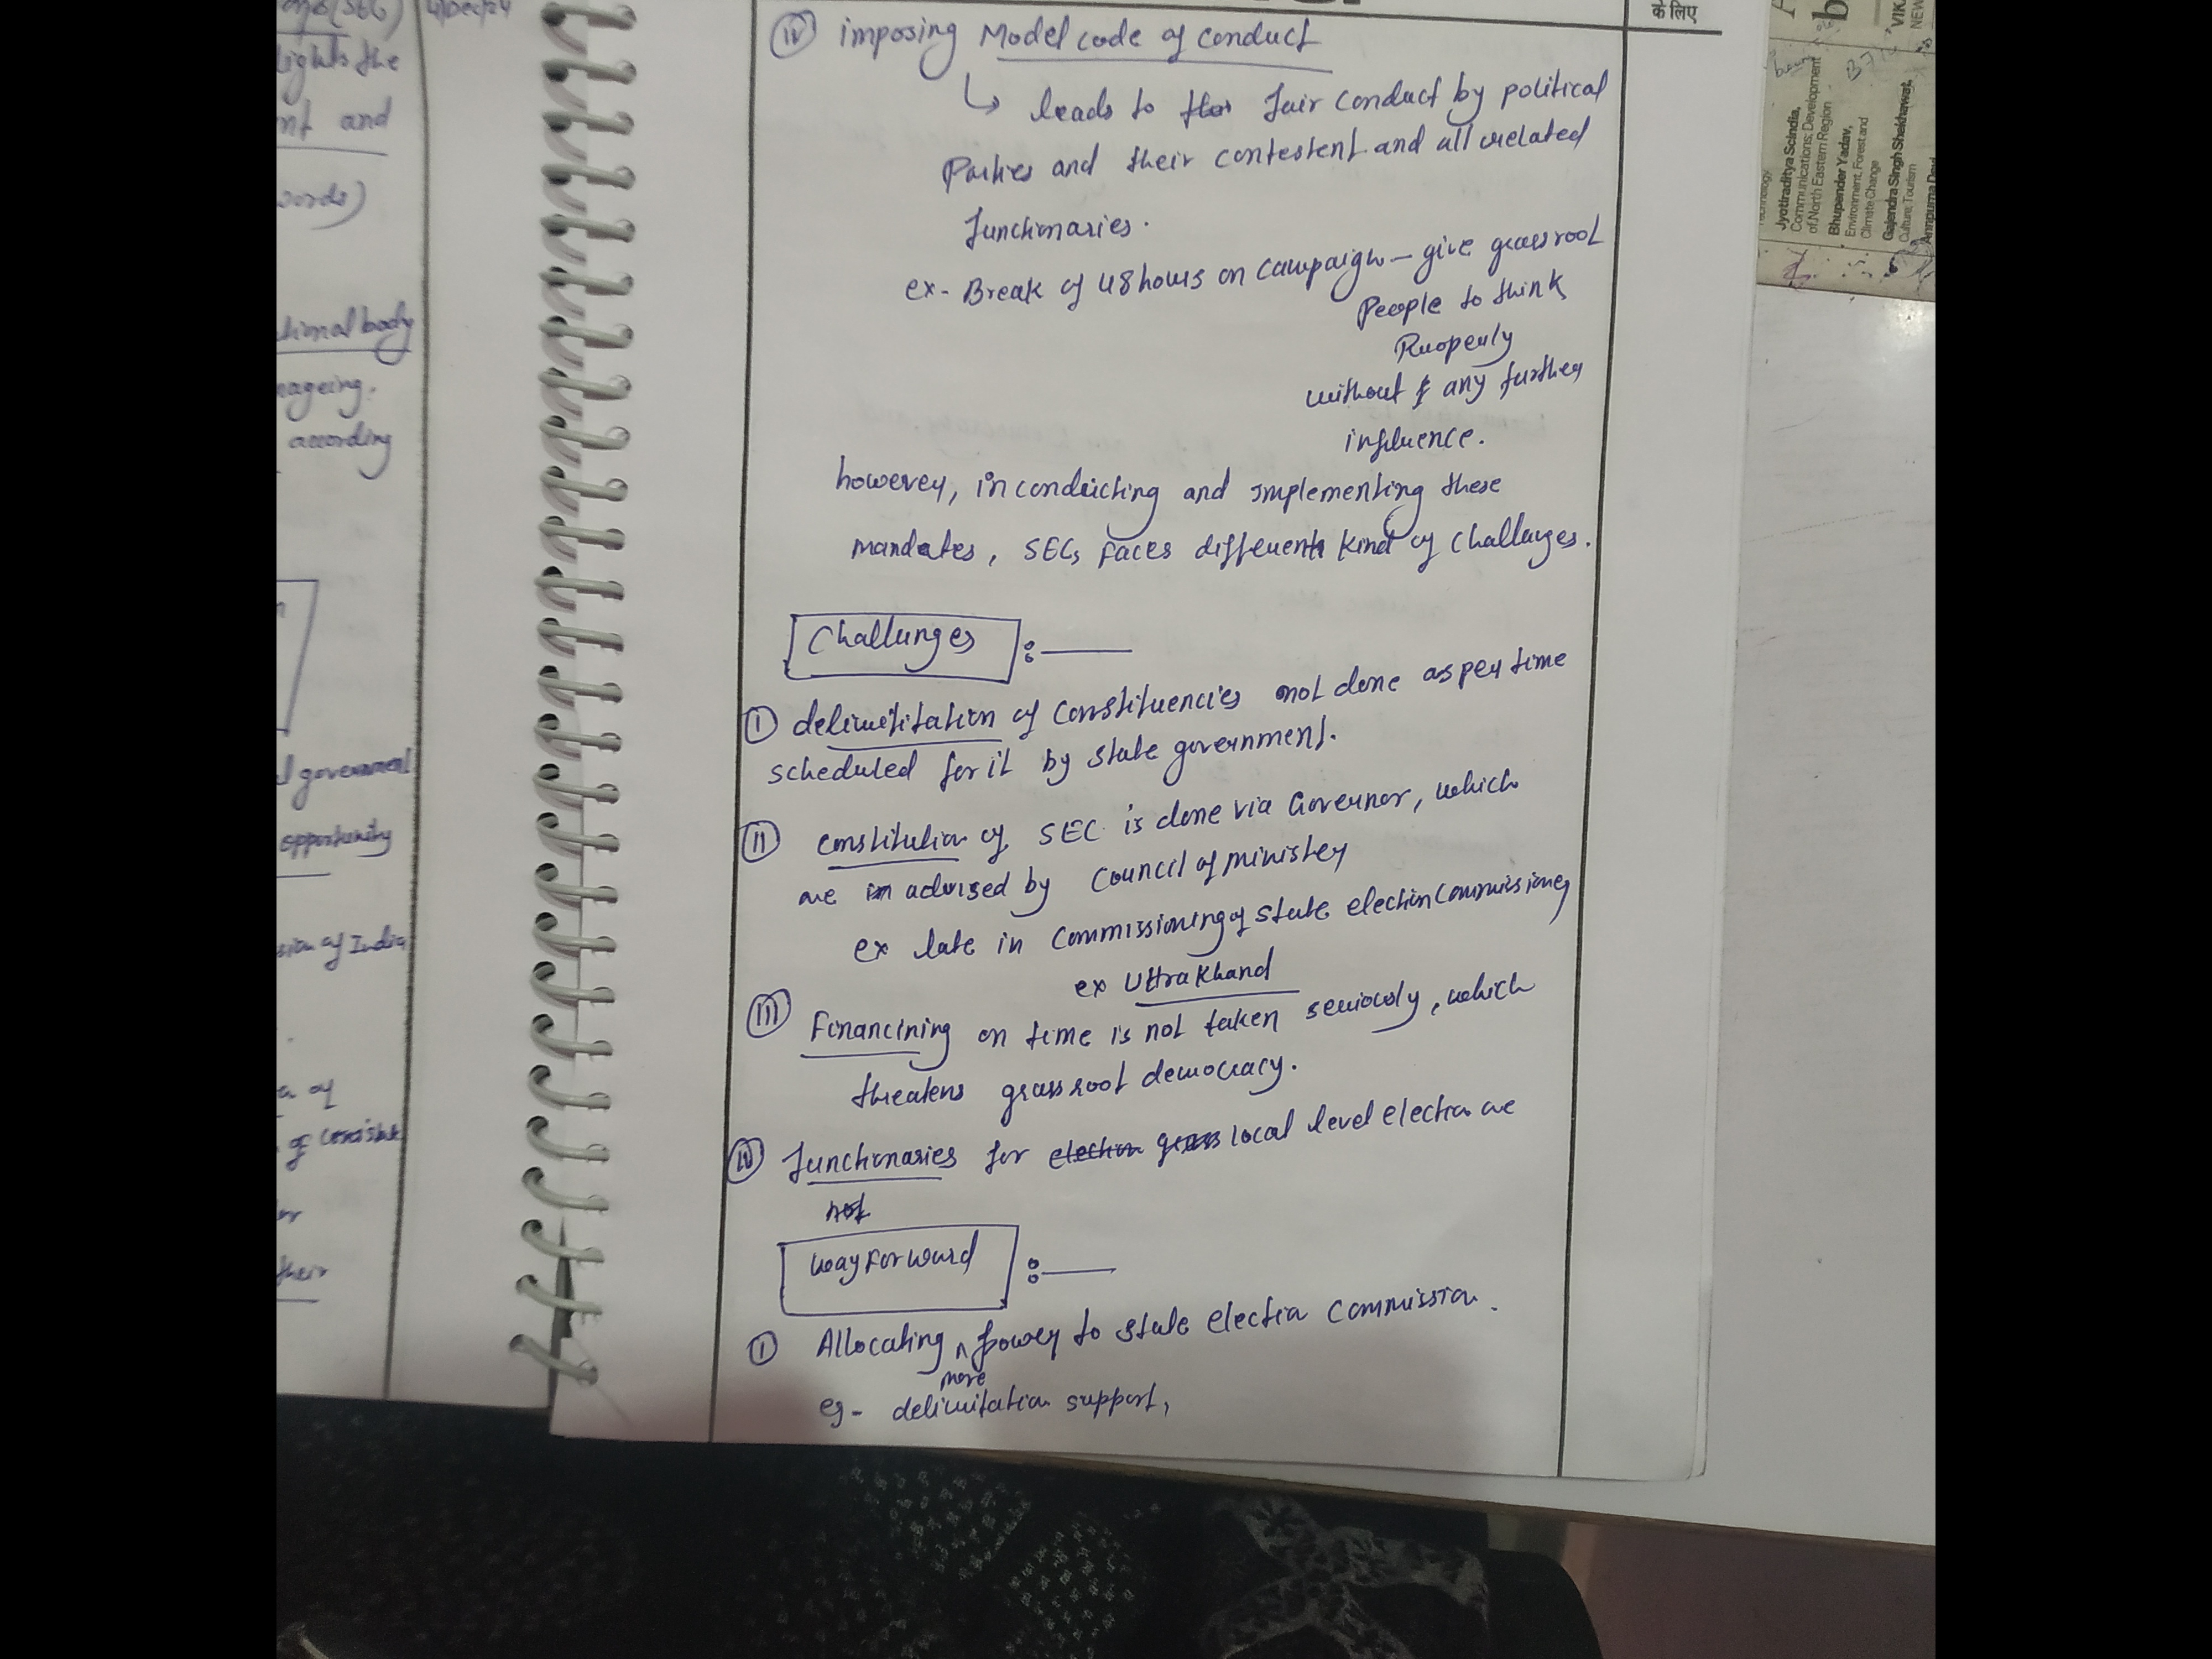 (SEC) 4/Dec/24
lights the
and
words)
body
according
government
opportunity
of India
of
of
their
के लिए
(iv) imposing Model code of conduct
↳ leads to fair conduct by political
Parties and their contestent and all related
functionaries.
ex- Break of 48 hours on campaign - give grassroot
People to think
Properly
without any further
influence.
however, in conducting and implementing these
mandates, SECs faces different kind of challanges.
Challenges :—
(I) delimitation of constituencies not done as per time
scheduled for it by state government.
(II) Constitution of SEC is done via Governor, which
are advised by Council of minister
ex late in Commissioning of state election commissioner
ex Uttrakhand
(III) Financining on time is not taken seriously, which
threatens grassroot democracy.
(IV) functionaries for election grass local level election are
not
way Forward :—
(I) Allocating more power to state election commission.
eg- delimitation support,
Jyotiraditya Scindia,
Communications; Development
of North Eastern Region
Bhupender Yadav,
Environment, Forest and
Climate Change
Gajendra Singh Shekhawat,
Culture; Tourism